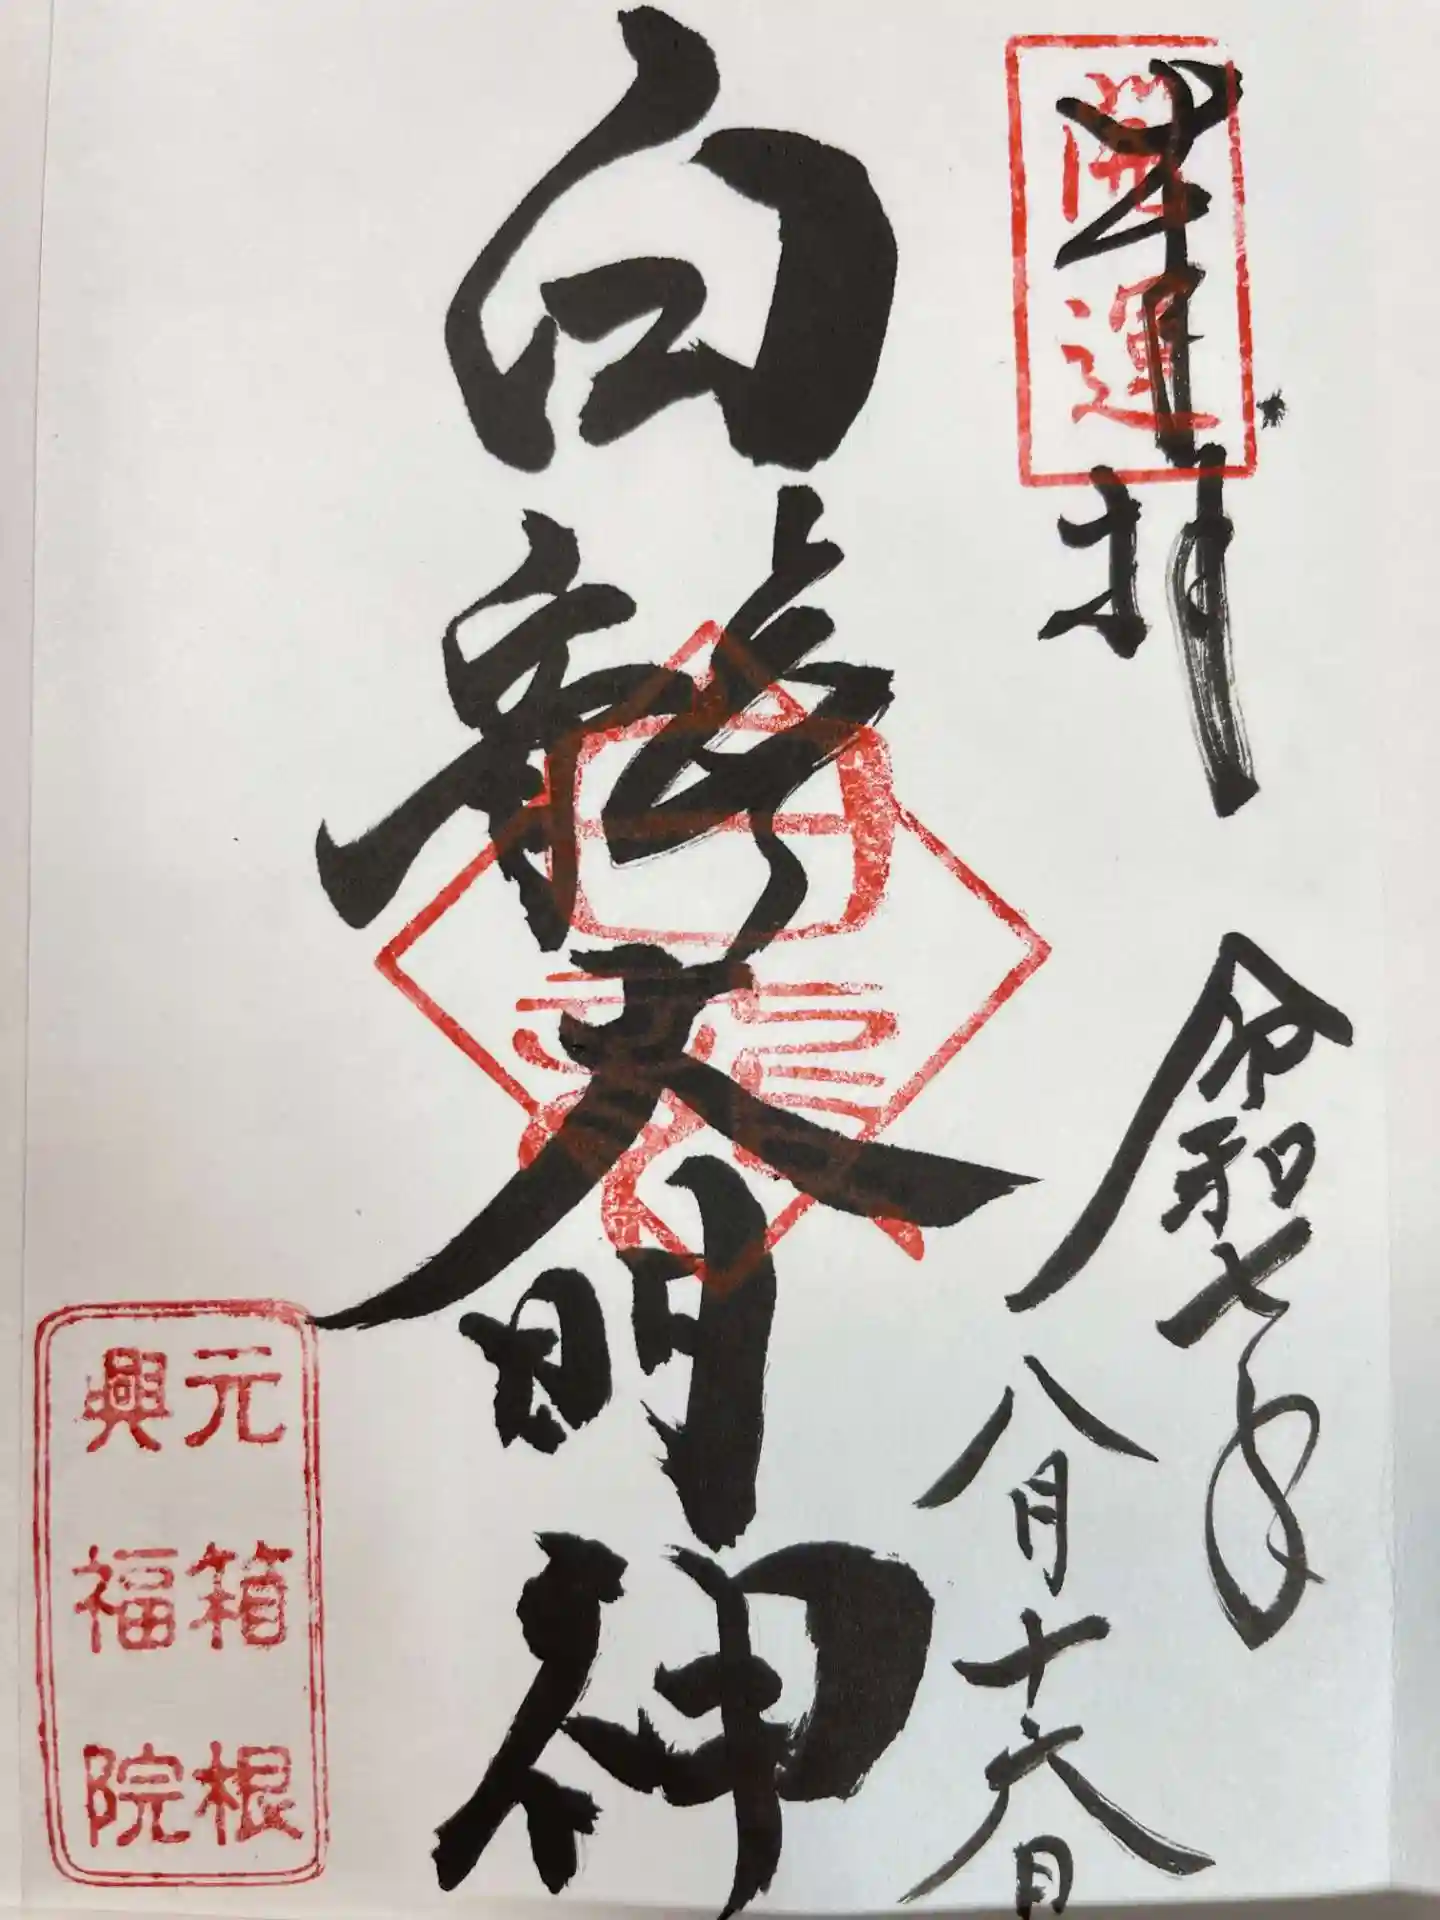 奉拝
開運
令和七年
八月十六日
白龍天明神
白龍
元箱根
興福院